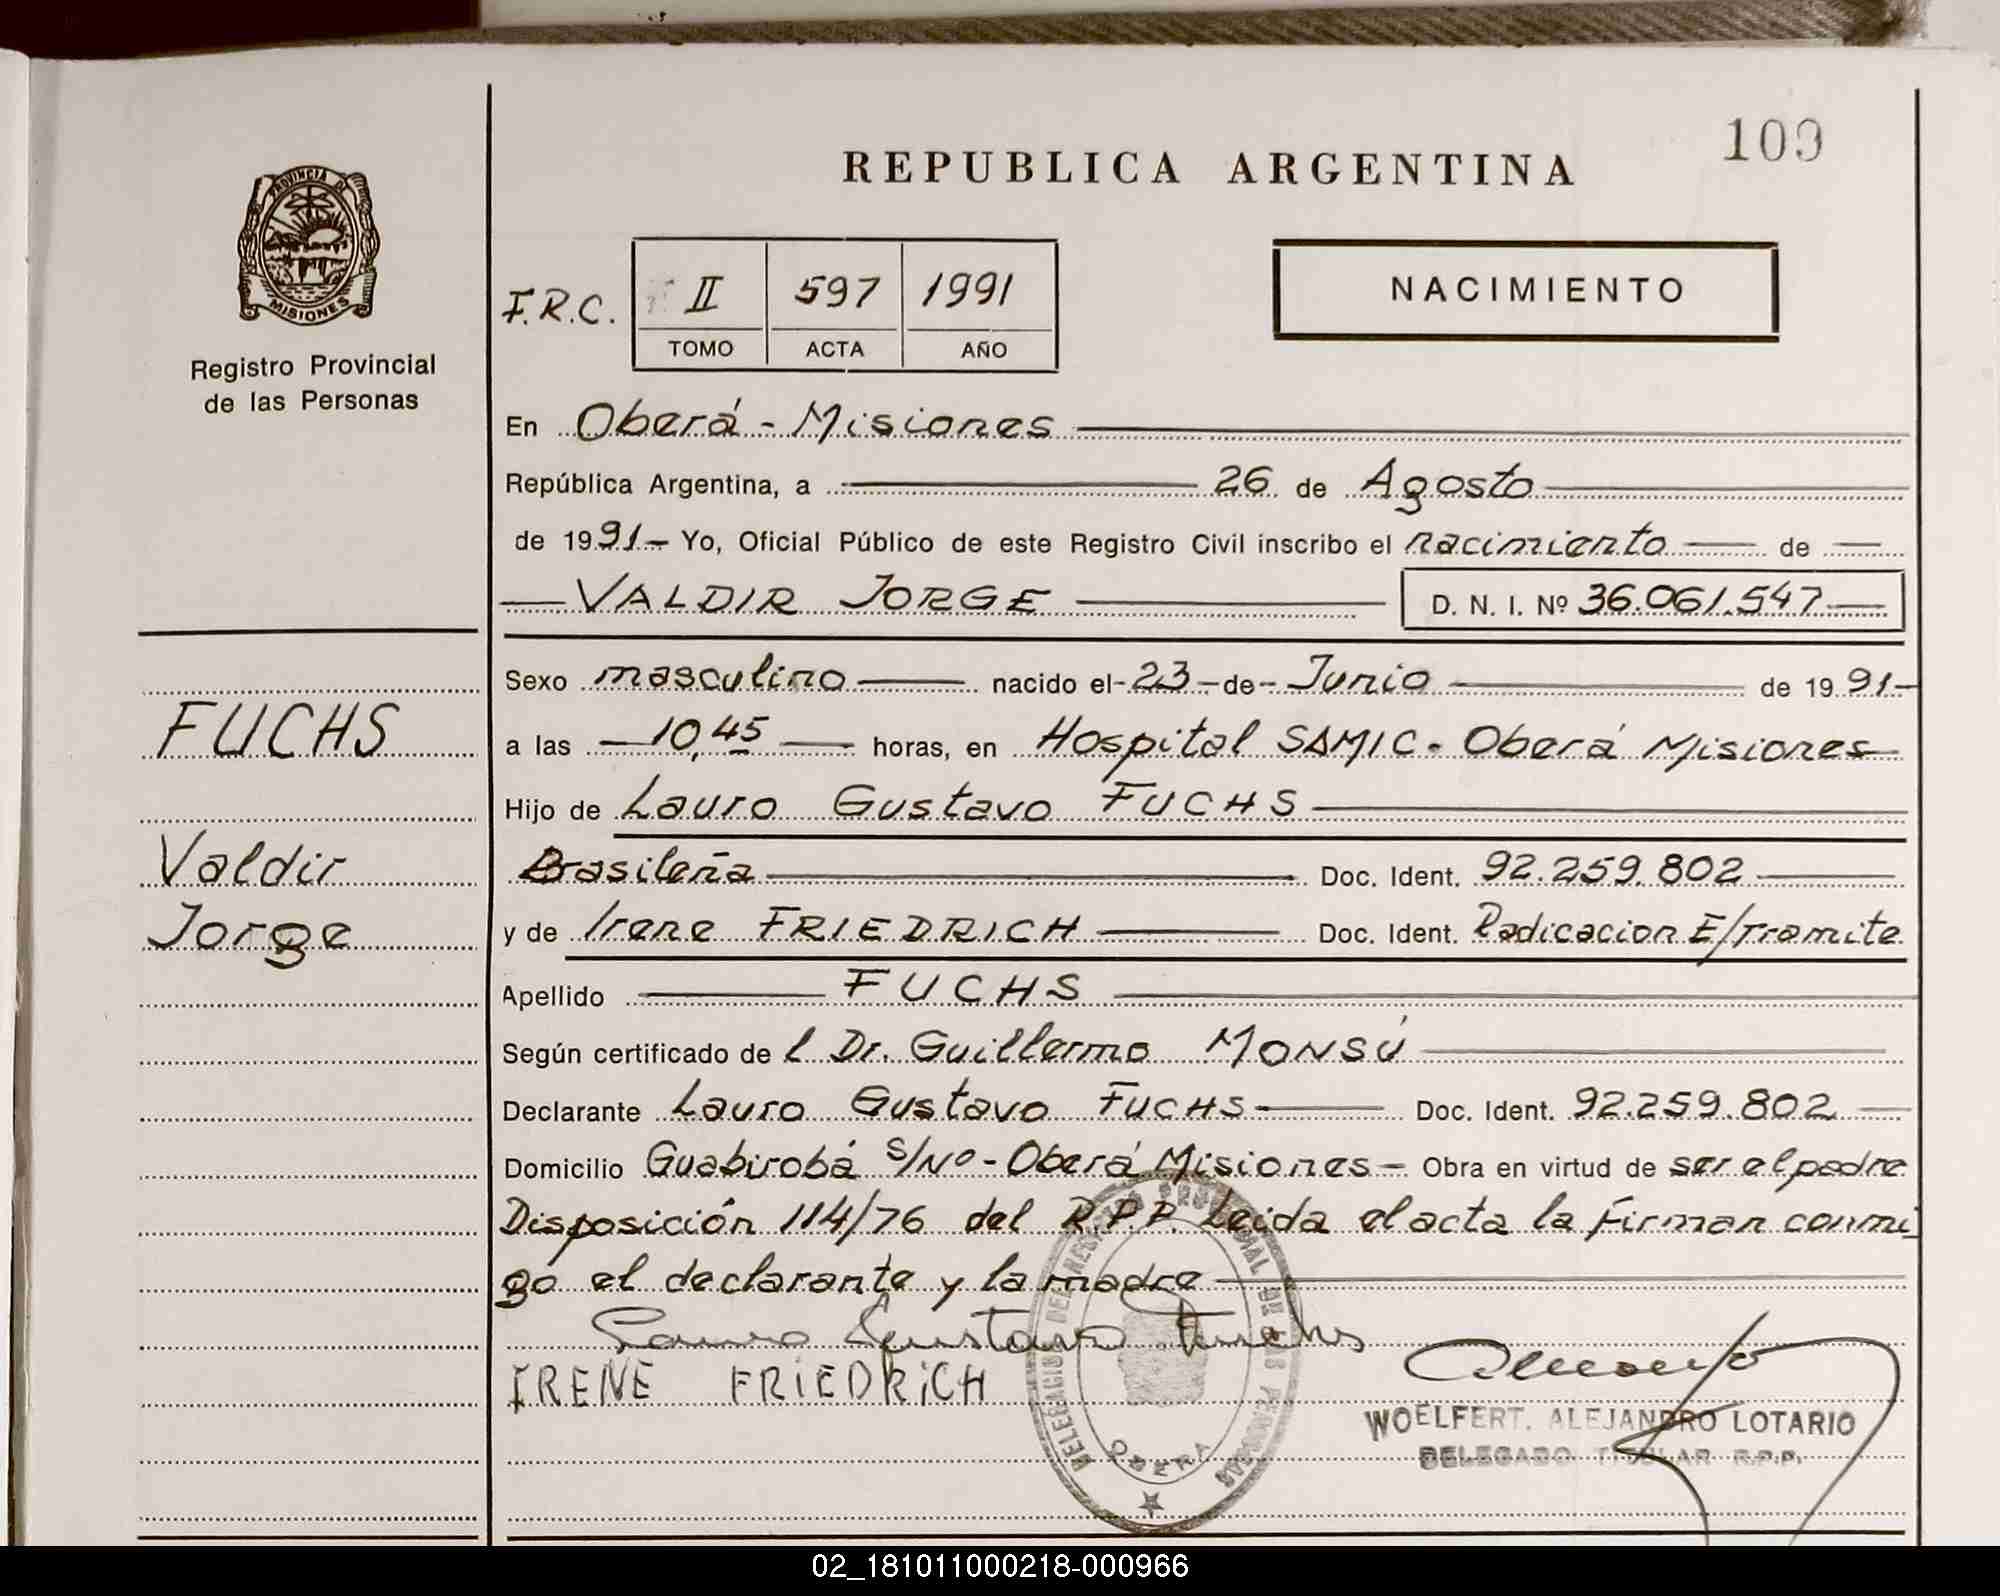 109
REPUBLICA ARGENTINA
PROVINCIA DE
MISIONES
Registro Provincial
de las Personas
F.R.C. II 597 1991
TOMO ACTA AÑO
NACIMIENTO
En Oberá - Misiones
República Argentina, a 26 de Agosto
de 1991 - Yo, Oficial Público de este Registro Civil inscribo el nacimiento de
VALDIR JORGE D. N. I. Nº 36.061.547
FUCHS
Valdir
Jorge
Sexo masculino nacido el - 23 - de - Junio de 1991 -
a las 10,45 horas, en Hospital SAMIC - Oberá Misiones
Hijo de Lauro Gustavo FUCHS
Brasileña Doc. Ident. 92.259.802
y de Irene FRIEDRICH Doc. Ident. Radicacion E/tramite
Apellido FUCHS
Según certificado de l Dr. Guillermo MONSÚ
Declarante Lauro Gustavo FUCHS Doc. Ident. 92.259.802
Domicilio Guabirobá S/Nº - Oberá Misiones - Obra en virtud de ser el padre
Disposición 114/76 del R.P.P. Leida el acta la firman conmi
go el declarante y la madre
Lauro Gustavo Fuchs
IRENE FRIEDRICH
DELEGACION DEL REGISTRO PROVINCIAL DE LAS PERSONAS
OBERA
WOELFERT. ALEJANDRO LOTARIO
DELEGADO TITULAR R.P.P.
02_181011000218-000966